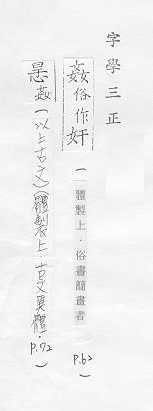 字學三正
姦俗作奸(體製上·俗書簡畫者 p.62)
悬姦(以上古文)(體製上·古文異體. p.72)